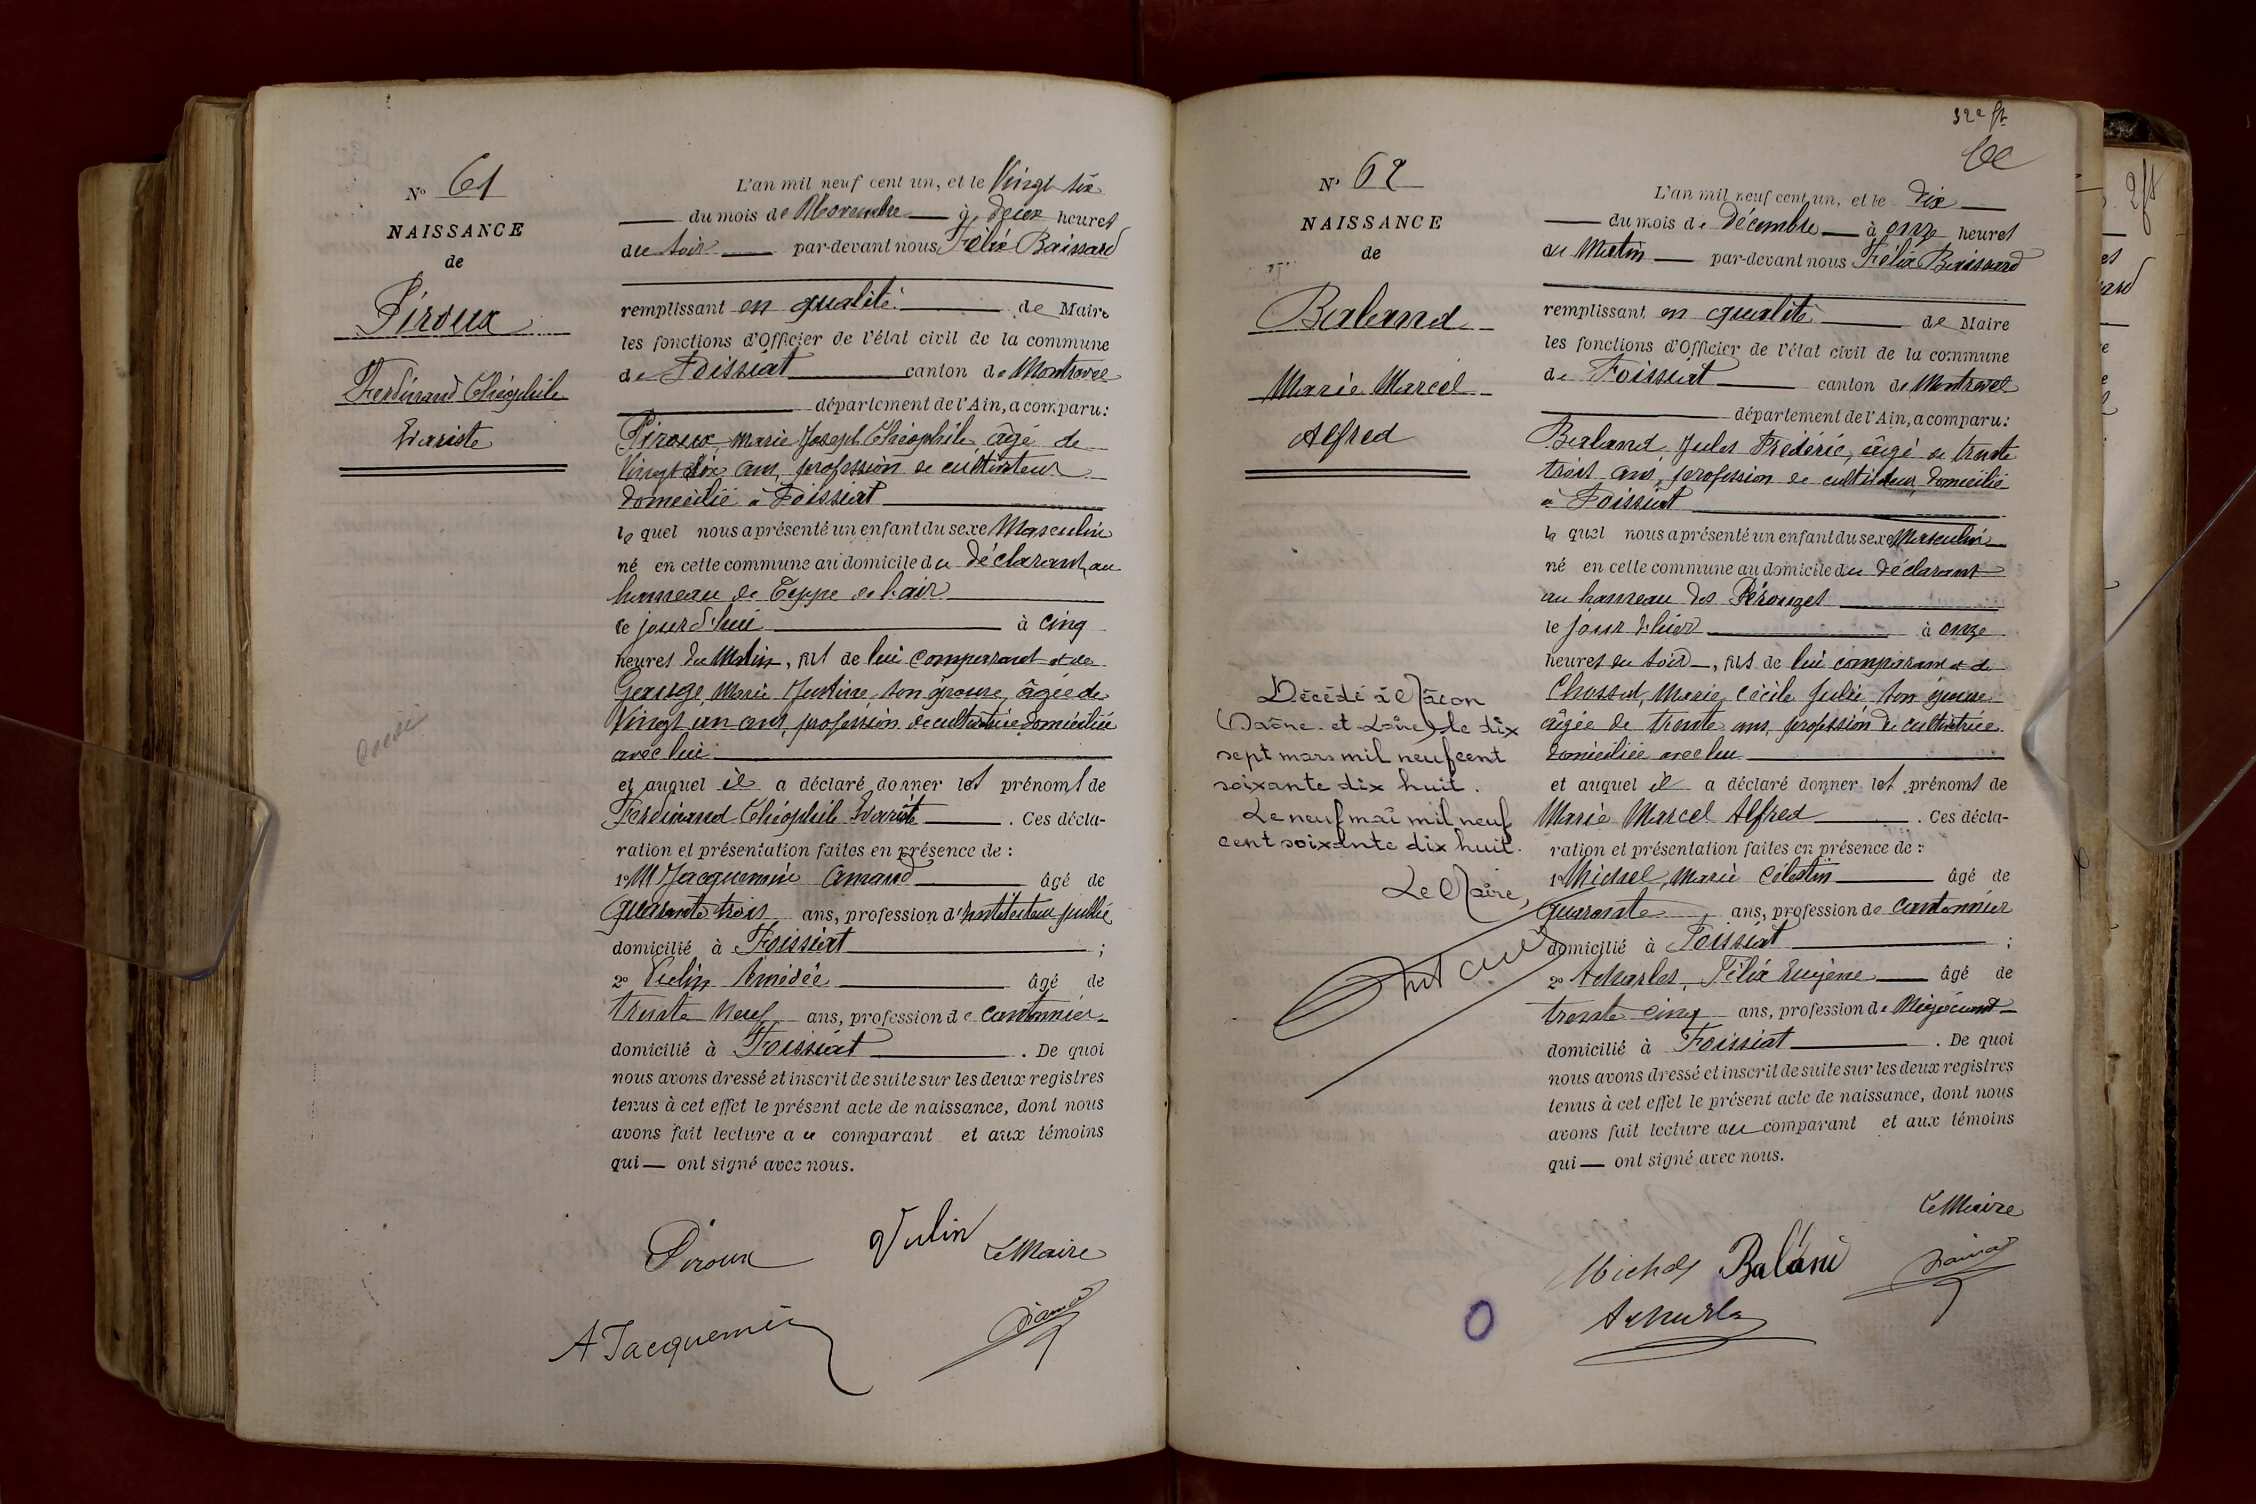 N° 61
NAISSANCE
de
Piroux
Ferdinand Théophile
Evariste
L'an mil neuf cent un, et le Vingt six
du mois de Novembre à deux heures
du soir par-devant nous Félix Baissard
remplissant en qualité de Maire
les fonctions d'Officier de l'état civil de la commune
de Foissiat canton de Montrevel
département de l'Ain, a comparu:
Piroux, Marie Joseph Théophile âgé de
Vingt six ans, profession de cultivateur
domicilié à Foissiat
le quel nous a présenté un enfant du sexe Masculin
né en cette commune au domicile du déclarant, au
hameau de Teppe de l'air
le jourd'hui à cinq
heures du Matin, fils de lui comparant et de
George, Marie Justine, son épouse, âgée de
Vingt un ans, profession de cultivatrice domiciliée
avec lui
et auquel il a déclaré donner les prénoms de
Ferdinand Théophile Evariste. Ces décla-
ration et présentation faites en présence de :
1° M Jacquemin Amand âgé de
quarante trois ans, profession d'instituteur public
domicilié à Foissiat ;
2° Vulin Amédée âgé de
trente neuf ans, profession de cantonnier
domicilié à Foissiat. De quoi
nous avons dressé et inscrit de suite sur les deux registres
tenus à cet effet le présent acte de naissance, dont nous
avons fait lecture au comparant et aux témoins
qui ont signé avec nous.
Piroux Vulin Le Maire
A Jacquemin
N° 62
NAISSANCE
de
Baland
Marie Marcel
Alfred
Décédé à Mâcon
(Saône-et-Loire) le dix
sept mars mil neuf cent
soixante dix huit.
Le neuf mai mil neuf
cent soixante dix huit.
Le Maire,
L'an mil neuf cent un, et le dix
du mois de Décembre à onze heures
du Matin par-devant nous Félix Baissard
remplissant en qualité de Maire
les fonctions d'Officier de l'état civil de la commune
de Foissiat canton de Montrevel
département de l'Ain, a comparu:
Baland, Jules Frédéric, âgé de trente
trois ans, profession de cultivateur, domicilié
à Foissiat
le quel nous a présenté un enfant du sexe Masculin
né en cette commune au domicile du déclarant
au hameau des Pérouzes
le jour d'hier à onze
heures du soir, fils de lui comparant et de
Chossat, Marie Cécile Julie son épouse
âgée de trente ans, profession de cultivatrice
domiciliée avec lui
et auquel il a déclaré donner les prénoms de
Marie Marcel Alfred. Ces décla-
ration et présentation faites en présence de :
1° Michel, Marie Célestin âgé de
quarante ans, profession de cantonnier
domicilié à Foissiat ;
2° Félix Eugène âgé de
trente cinq ans, profession de Négociant
domicilié à Foissiat. De quoi
nous avons dressé et inscrit de suite sur les deux registres
tenus à cet effet le présent acte de naissance, dont nous
avons fait lecture au comparant et aux témoins
qui ont signé avec nous.
Le Maire
Michel Baland